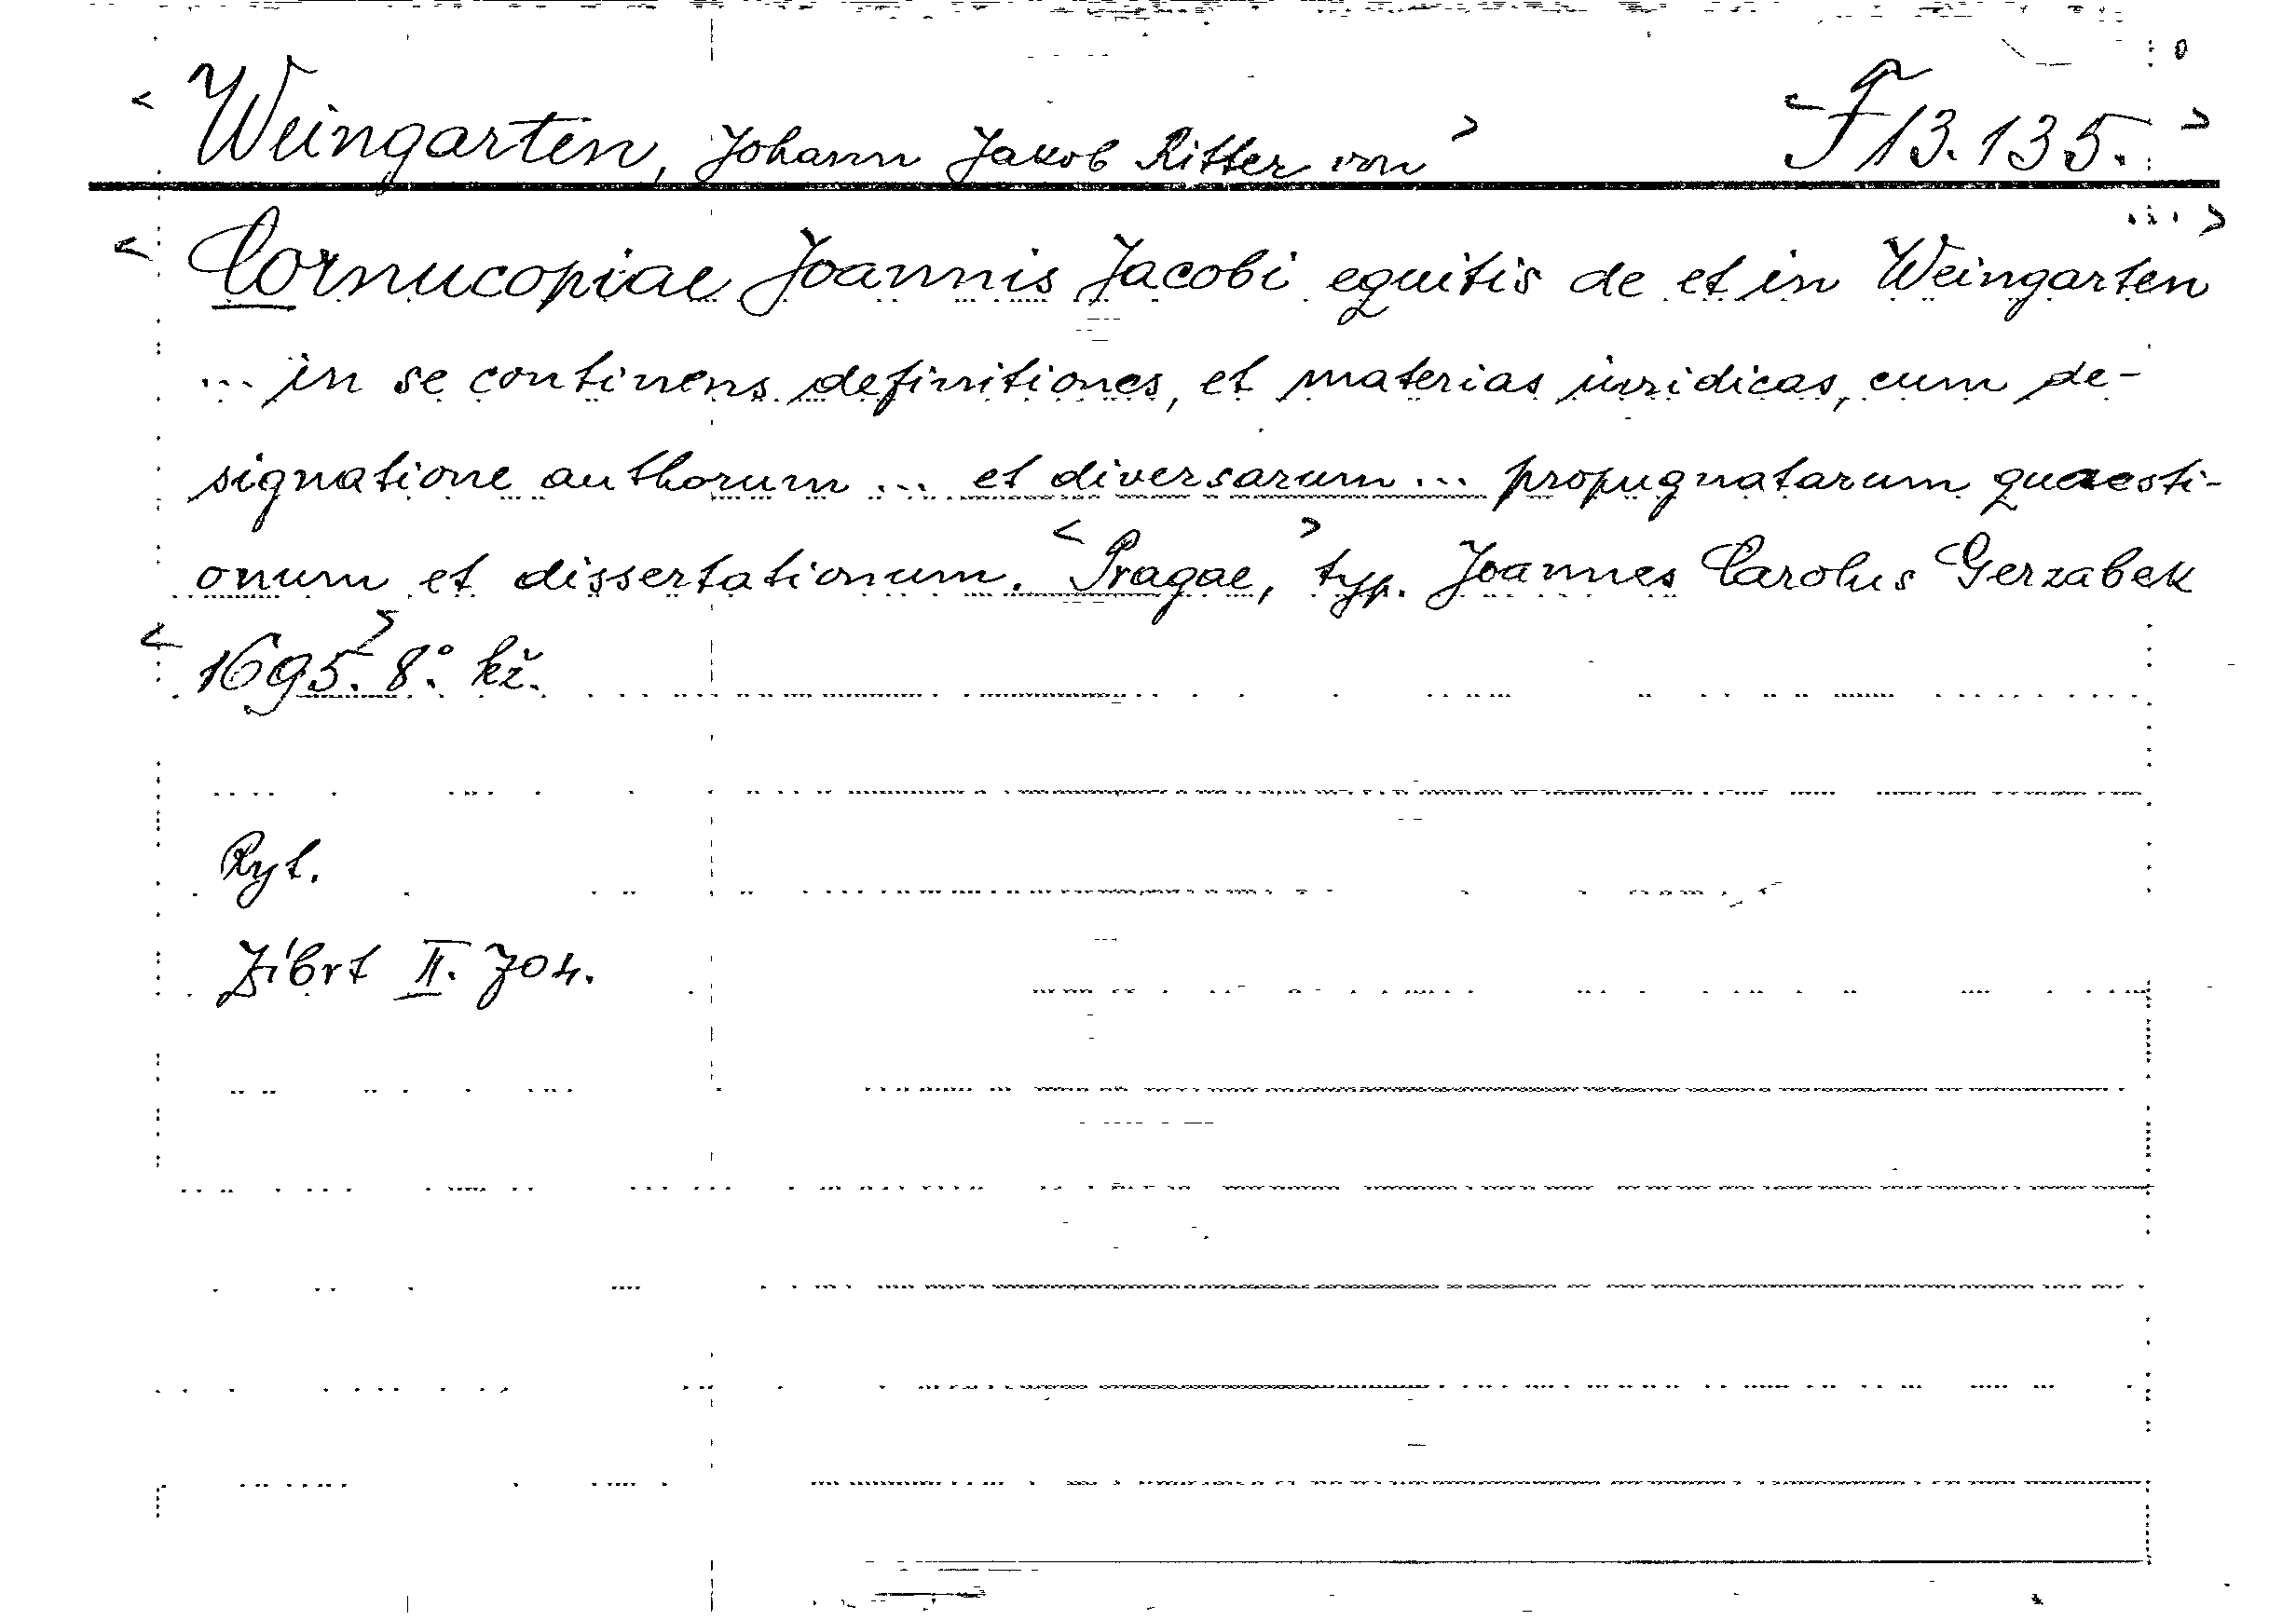 < Weingarten, Johann Jakob Ritter von > < F 13.135. >
< Cornucopiae Joannis Jacobi equitis de et in Weingarten ... >
... in se continens definitiones, et materias iuridicas, cum de-
signatione authorum ... et diversarum ... propugnatarum quaesti-
onum et dissertationum. < Pragae, > typ. Joannes Carolus Gerzabek
< 1695. > 8° kž.
Ryt.
Zíbrt II. 704.